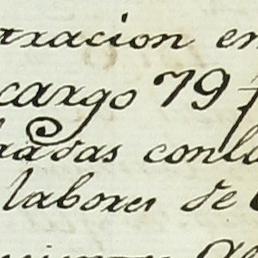 traxacion en
cargo 79
radas conla
labores de